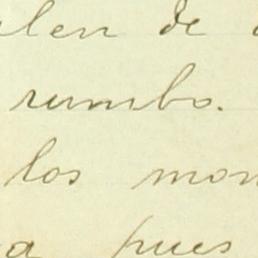 alen de
rumbo.
los mon
a pues